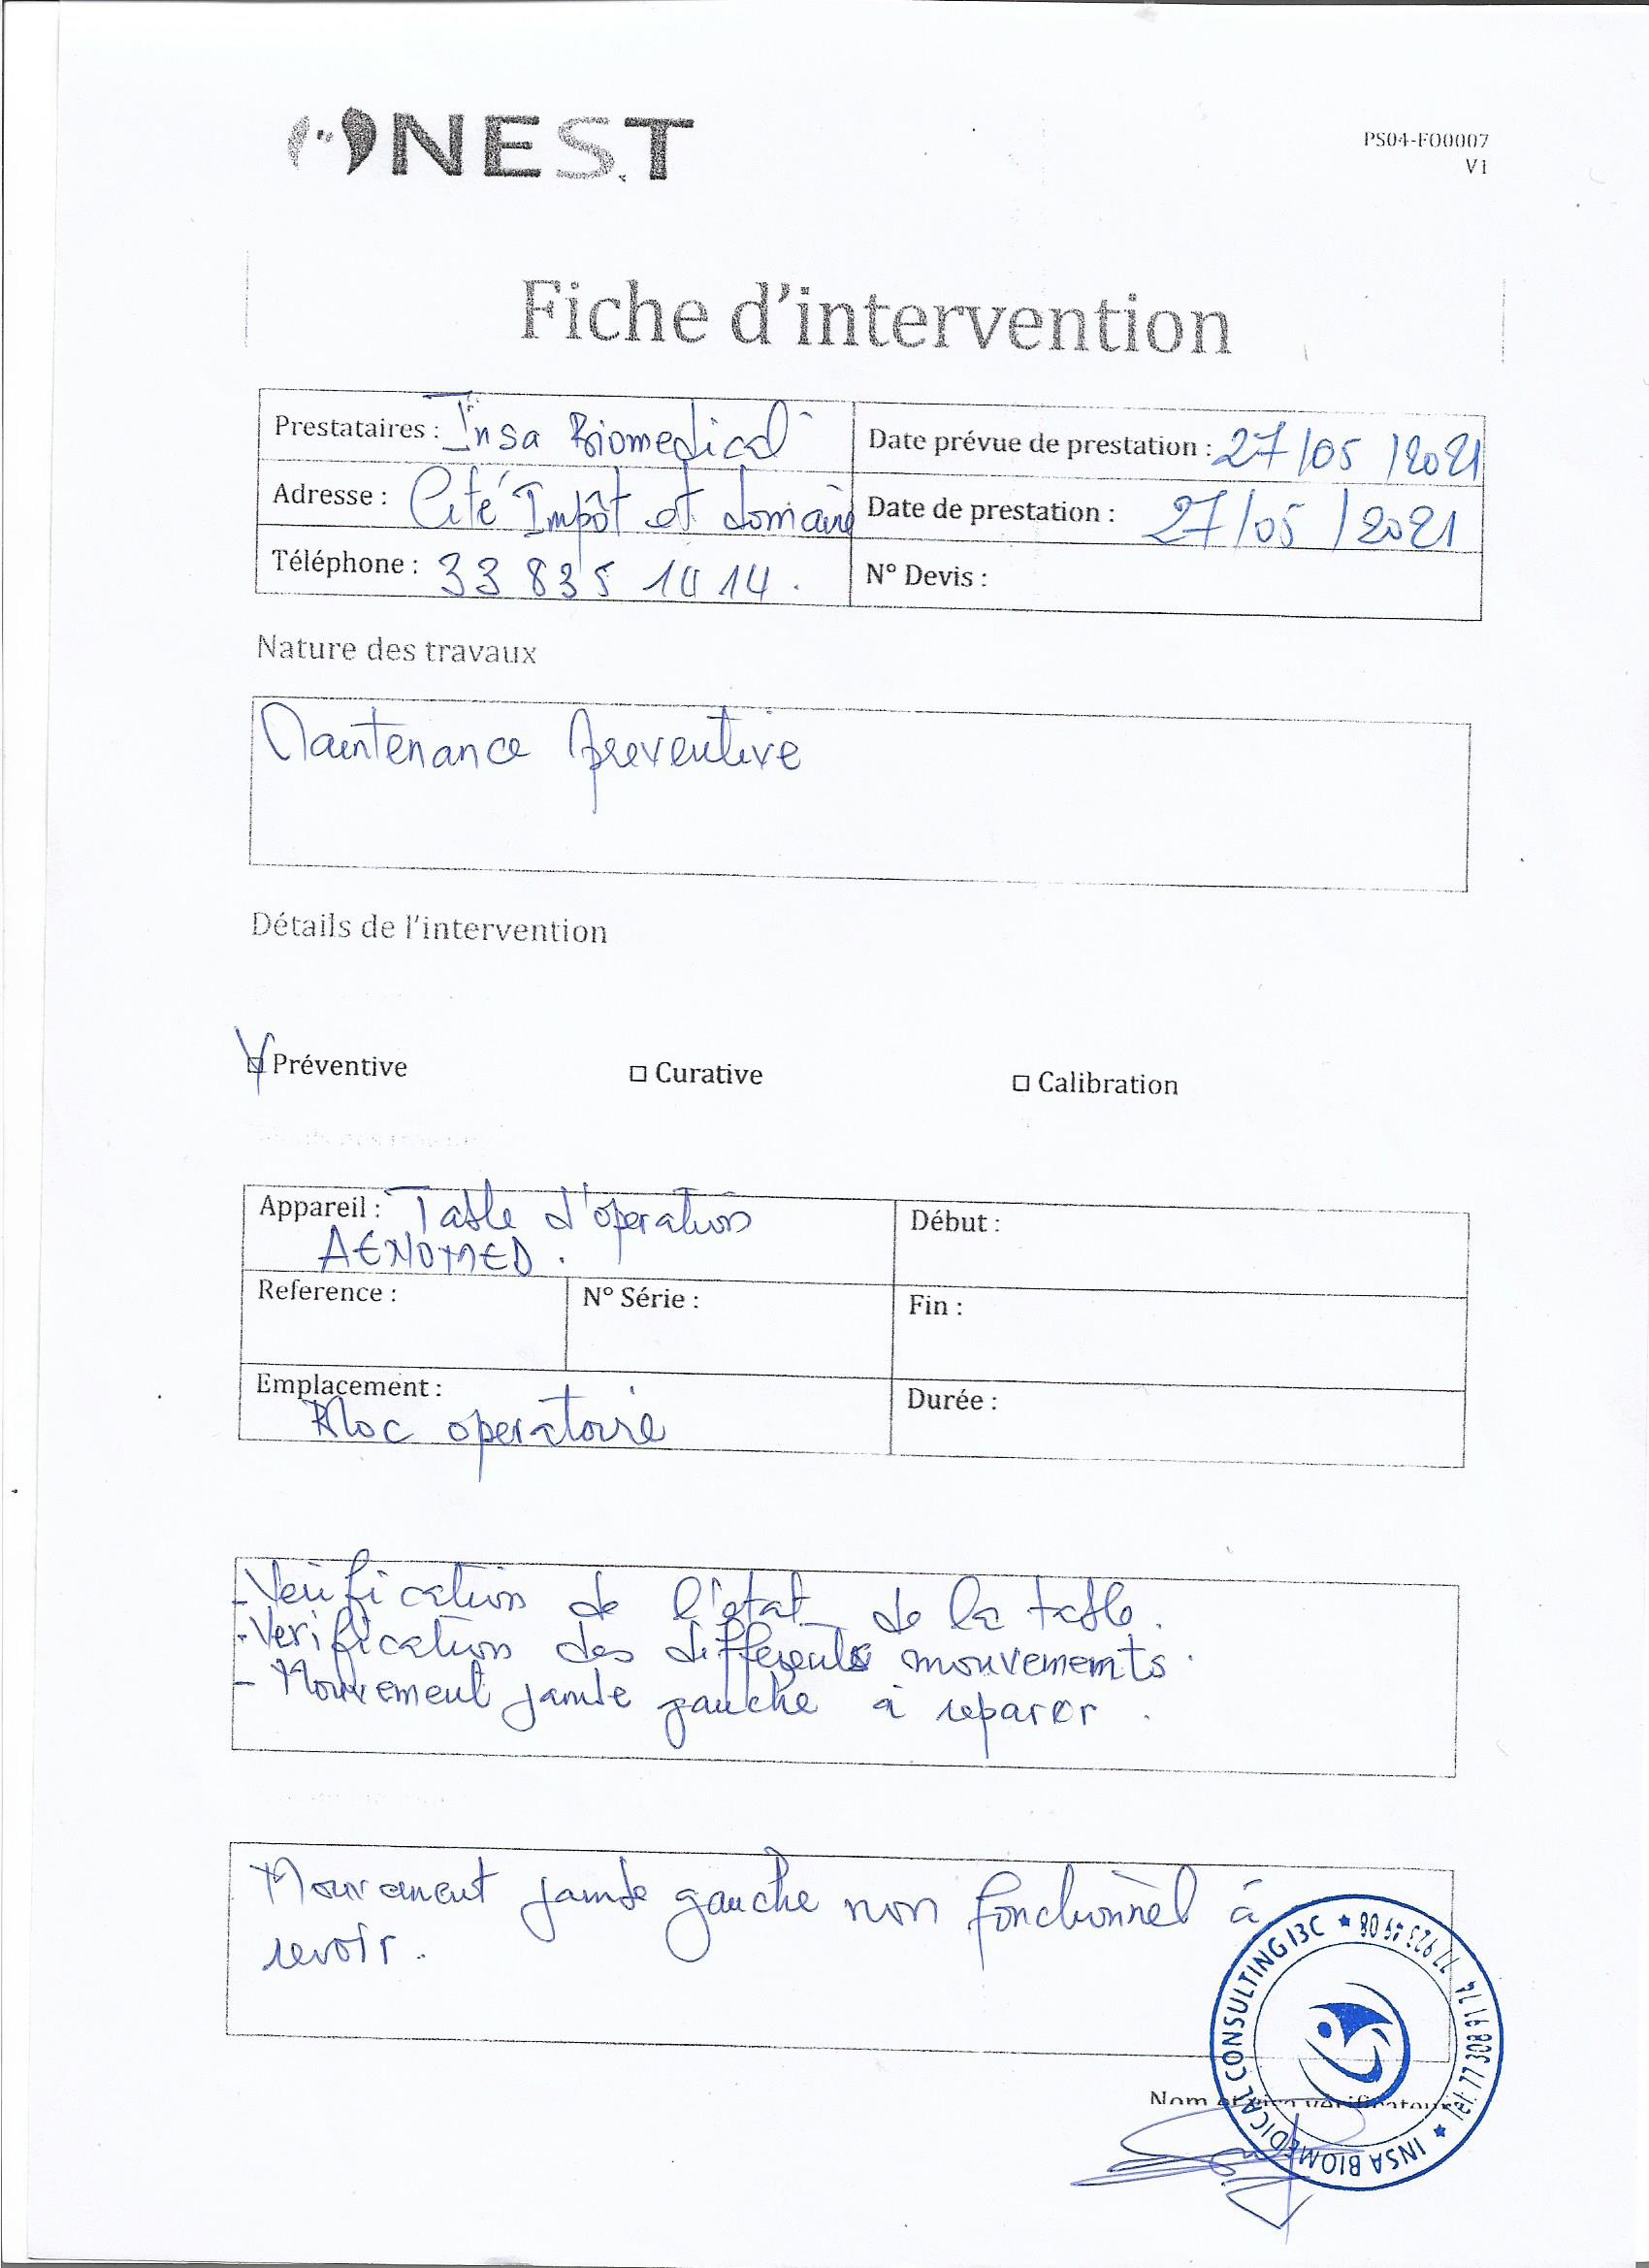 NEST
PS04-FO0007
V1
Fiche d'intervention
Prestataires : Insa Biomedical
Date prévue de prestation : 27/05/2021
Adresse : Cité Impôt et domaine
Date de prestation : 27/05/2021
Téléphone : 33 835 14 14.
N° Devis :
Nature des travaux
Maintenance preventive
Détails de l'intervention
Préventive
Curative
Calibration
Appareil : Table d'operation
AENOMED.
Début :
Reference :
N° Série :
Fin :
Emplacement :
Bloc operatoire
Durée :
- Verification de l'etat de la table.
- Verification des differents mouvements.
- Mouvement jambe gauche à reparer.
Mouvement jambe gauche non fonctionnel à
revoir.
Nom et visa vérificateur
INSA BIOMEDICAL CONSULTING I3C ★ 77 923 49 08
★ Tél: 77 308 91 74